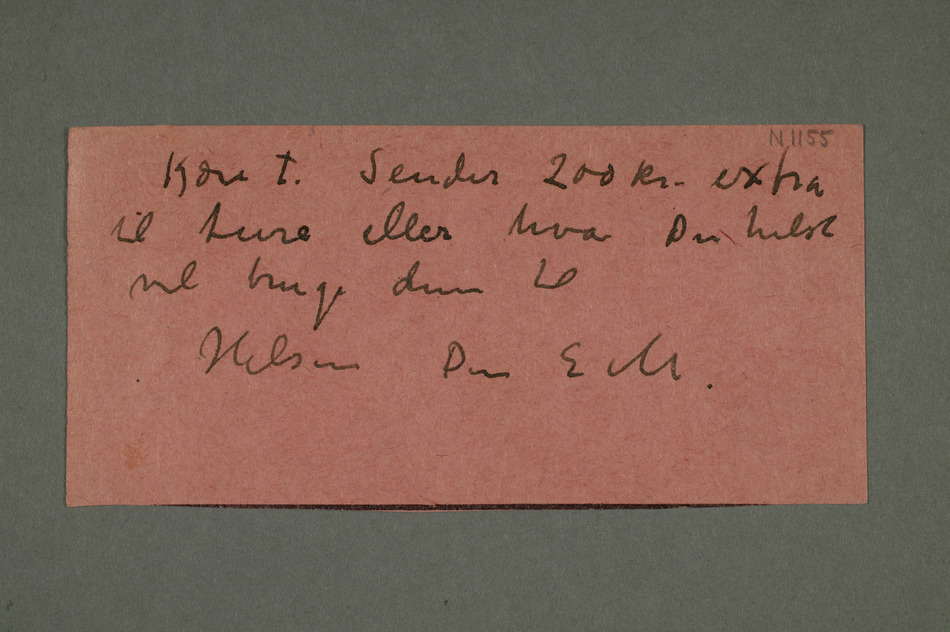 N 1155
Kjære T. Sender 200 kr. extra
til turer eller hva Du helst
vil bruge dem til
Hilsen Din E M.